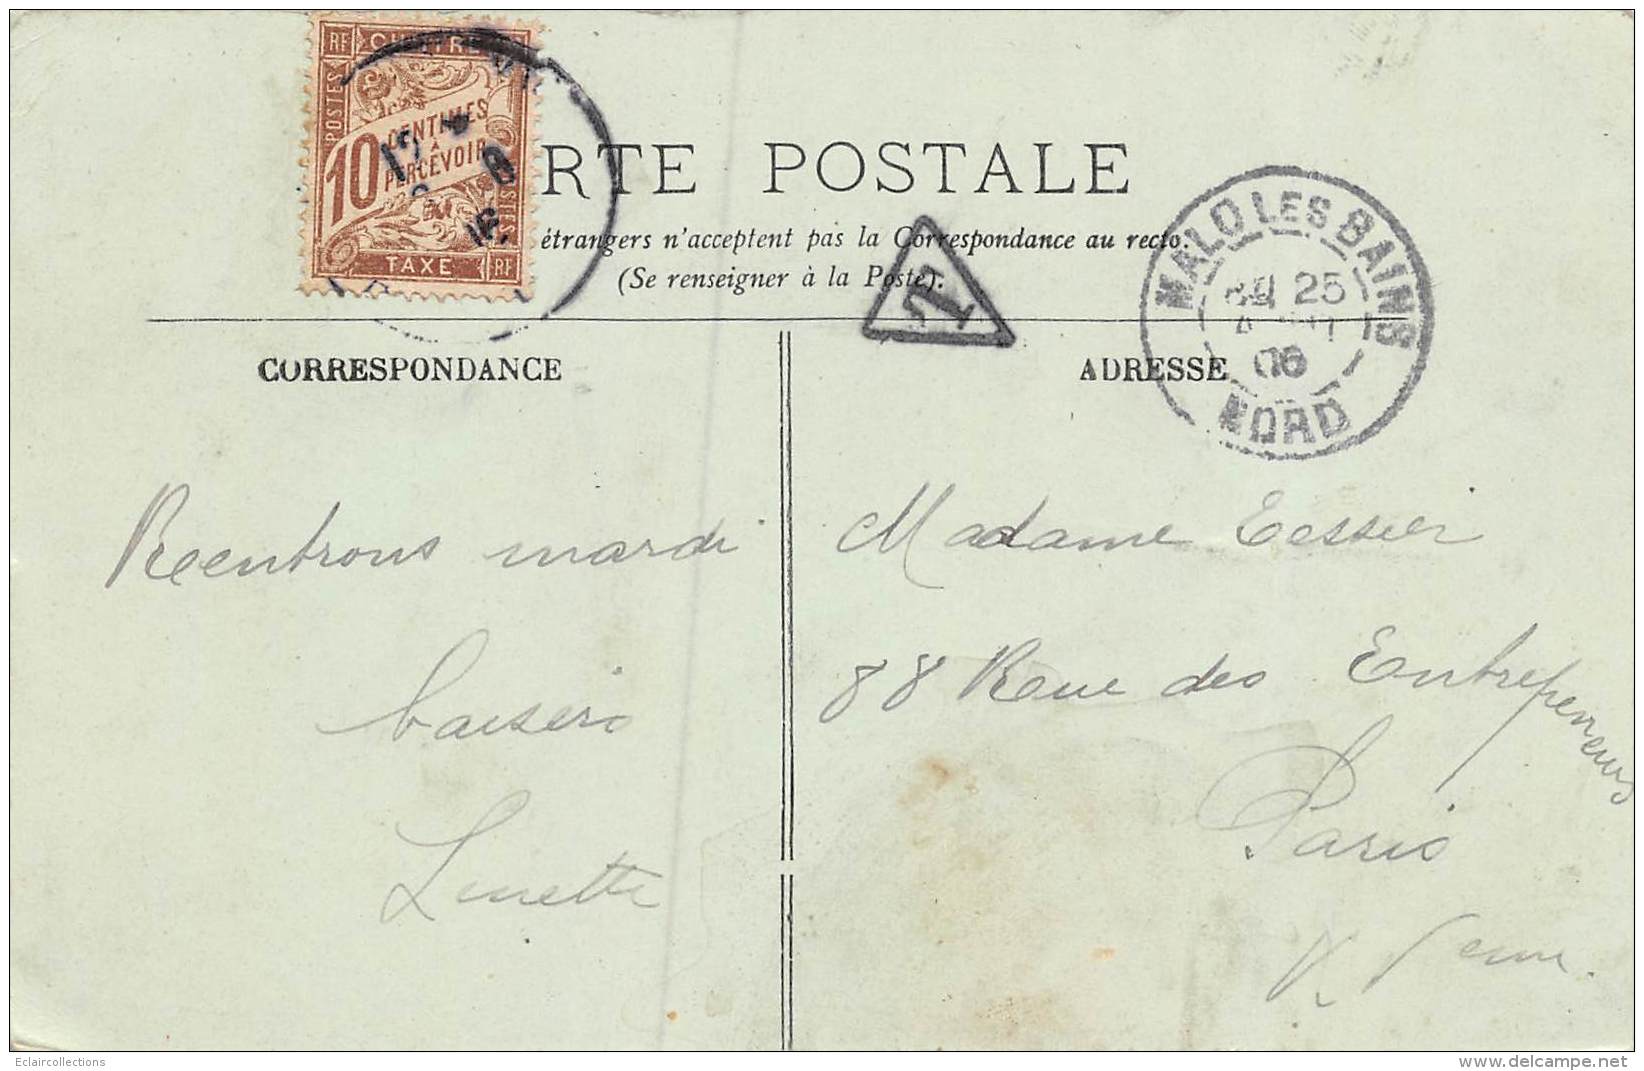 RF
CHIFFRE
POSTES
10
CENTIMES
À
PERCEVOIR
POSTES
TAXE
RF
RTE POSTALE
étrangers n'acceptent pas la Correspondance au recto.
(Se renseigner à la Poste).
T
MALO LES BAINS
25
06
NORD
CORRESPONDANCE
ADRESSE
Reentrons mardi
baisers
Linette
Madame Tessier
88 Rue des Entrepreneurs
Paris
Eclaircollections
www.delcampe.net